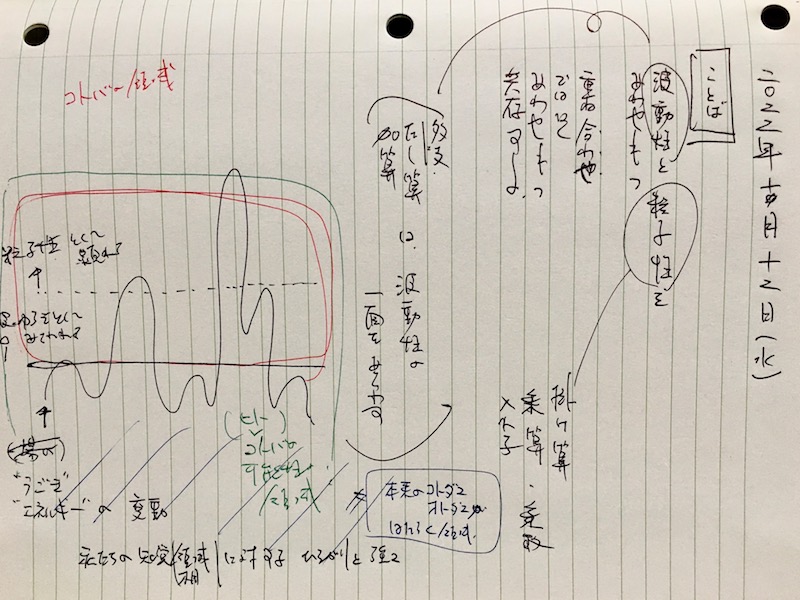 二〇二二年十月十二日(水)
ことば
波動性と粒子性を
あわせもつ
重ね合わせ
ではなく
あわせもつ
共存する
掛け算
乗算・乗数
メトネ
たし算は、波動性の
加算
一面をあらわす
コトバの領域
粒子性として
顕れる
(場の)
"うごき"
"エネルギー"の変動
(ヒト)
コトバの
可能性
領域
本来のコトダマ
オトダマが
はたらく領域
私たちの知覚領域に対する ひろがりと強さ
相